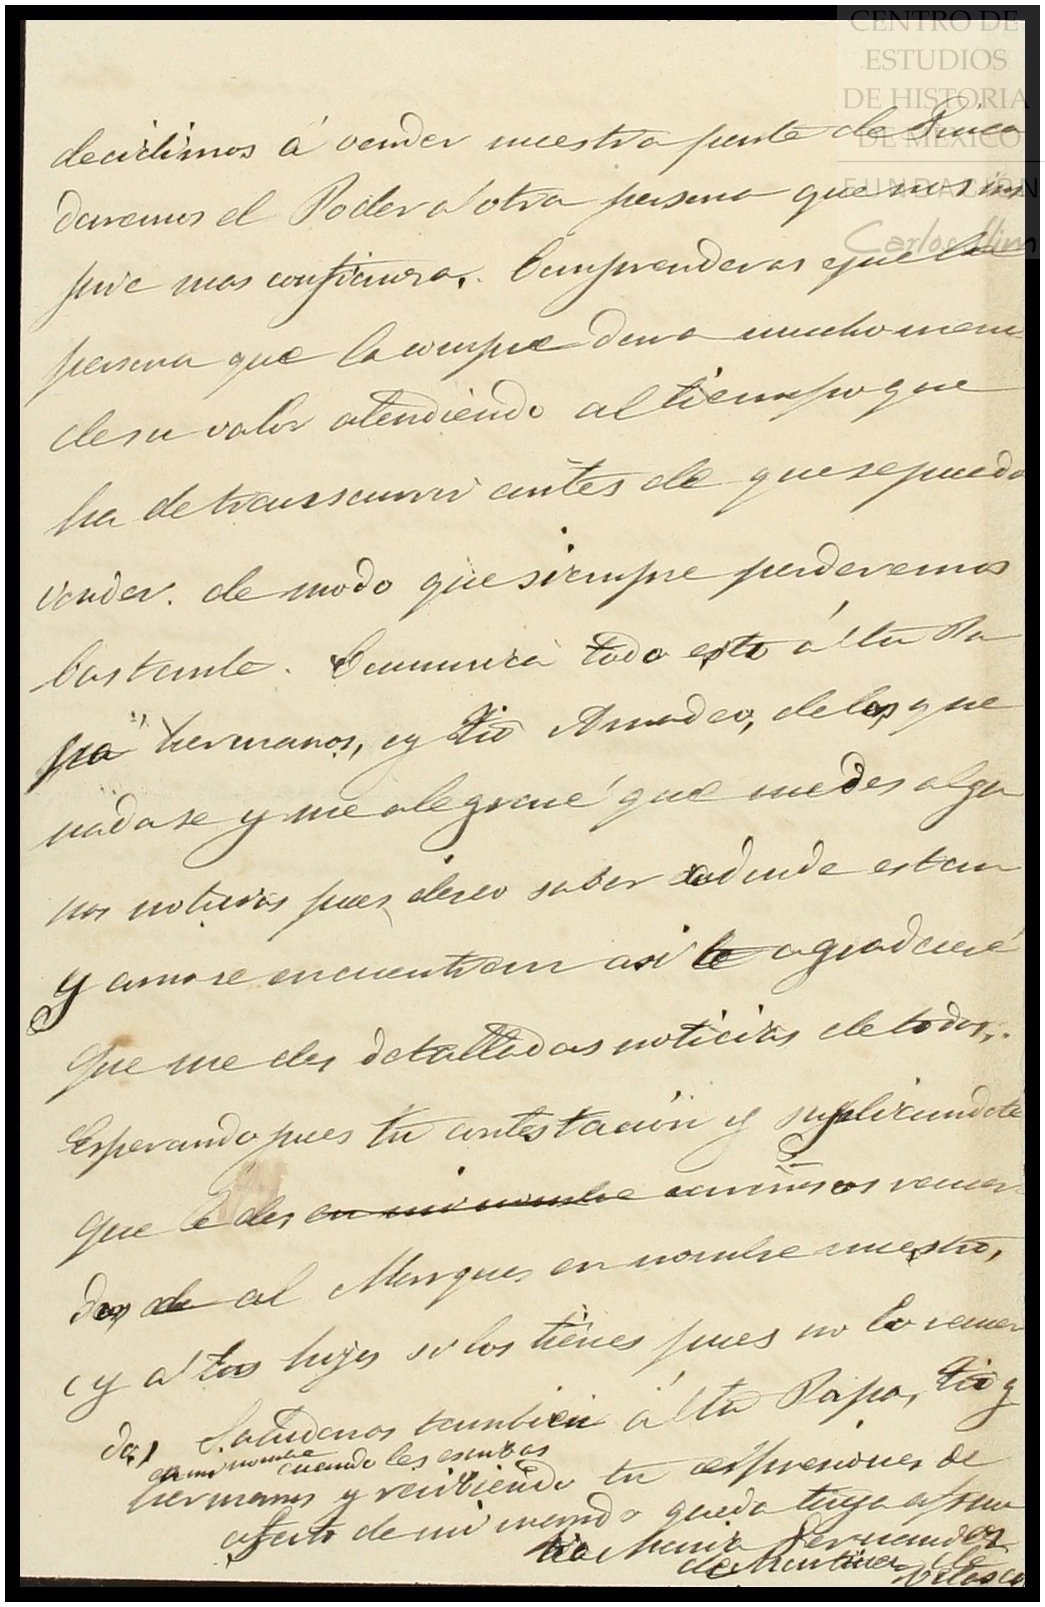 CENTRO DE
ESTUDIOS
DE HISTORIA
DE MEXICO
FUNDACIÓN
Carlos Slim
decidimos á vender nuestra parte de
daremos el Poder á otra persona que nos ins
pire mas confianza. Comprenderas que la
persona que la compre dara mucho menos
de su valor atendiendo al tiempo que
ha de transcurrir antes de que se pueda
vender. de modo que siempre perderemos
bastante. Comunica todo esto á tu Pa
pa hermanos, y tio Amadeo, de los que
nada se y me alegraré que me des algu
nas noticias pues deseo saber adonde estan
y como se encuentran asi le agradeceré
que me des detalladas noticias de todos.
Esperando pues tu contestación y suplicandote
que le des en mi nombre cariñosos recuer
dos de al Marques en nombre nuestro,
y á tus hijos si los tienes pues no lo recuer
do, Saludanos tambien á tu Papa, tio y
en mi nombre cuando les escribas
hermanos y recibiendo tu espresiones de
afecto de mi marido queda tuya afma
tia Maria Fernandez
de Martinez de
Velasco